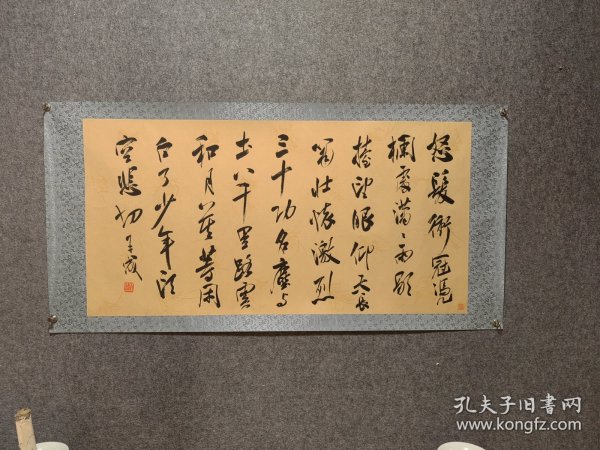 怒髮衝冠憑
欄處瀟々雨歇
擡望眼仰天長
嘯壮懷激烈
三十功名塵与
土八千里路雲
和月莫等闲
白了少年头
空悲切
孔夫子旧书网
www.kongfz.com